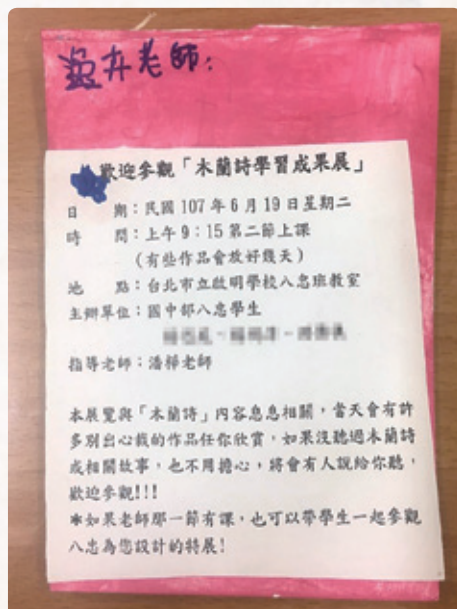 老師：
歡迎參觀「木蘭詩學習成果展」
日　　期：民國 107 年 6 月 19 日星期二
時　　間：上午 9：15 第二節上課
（有些作品會放好幾天）
地　　點：台北市立啟明學校八忠班教室
主辦單位：國中部八忠學生
指導老師：潘樺老師
本展覽與「木蘭詩」內容息息相關，當天會有許
多別出心裁的作品任你欣賞，如果沒聽過木蘭詩
或相關故事，也不用擔心，將會有人說給你聽，
歡迎參觀!!!
*如果老師那一節有課，也可以帶學生一起參觀
八忠為您設計的特展!